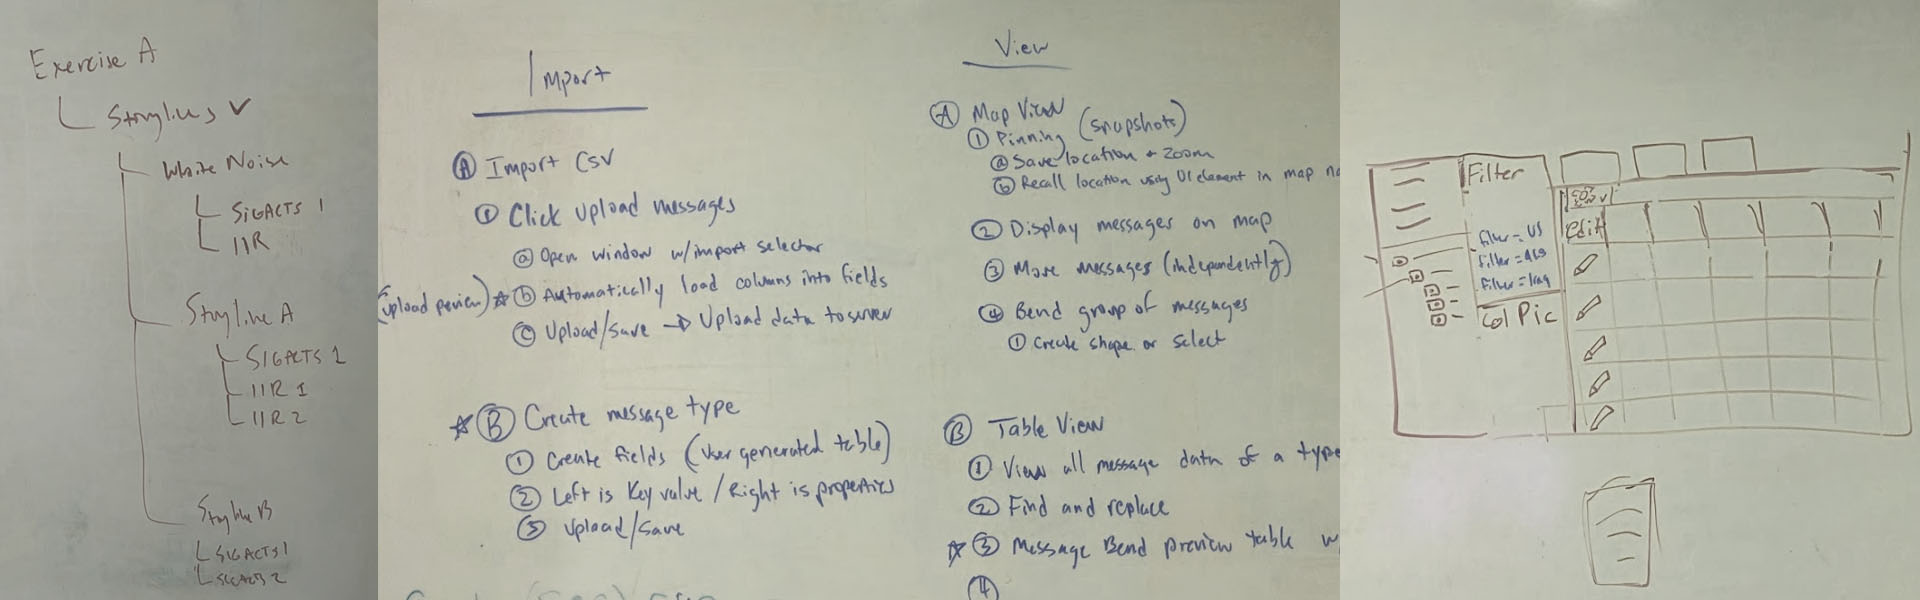 Exercise A
Storylines ✓
White Noise
SIGACTS 1
IIR
Storyline A
SIGACTS 1
IIR 1
IIR 2
Storyline B
SIGACTS 1
SIGACTS 2
Import
Ⓐ Import CSV
① Click Upload messages
ⓐ Open window w/import selector
(upload preview) ☆ ⓑ Automatically load columns into fields
ⓒ Upload/Save → Upload data to server
☆ Ⓑ Create message type
① Create fields (User generated table)
② Left is Key value / Right is properties
③ Upload/Save
View
Ⓐ Map View
① Pinning (snapshots)
ⓐ Save location + Zoom
ⓑ Recall location using UI element in map
② Display messages on map
③ Move messages (independently)
④ Bend group of messages
① Create shape or select
Ⓑ Table View
① View all message data of a type
② Find and replace
☆ ③ Message Bend preview table w
④
Filter
Filter = US
Filter =
Filter = Iraq
Col Pic
Edit